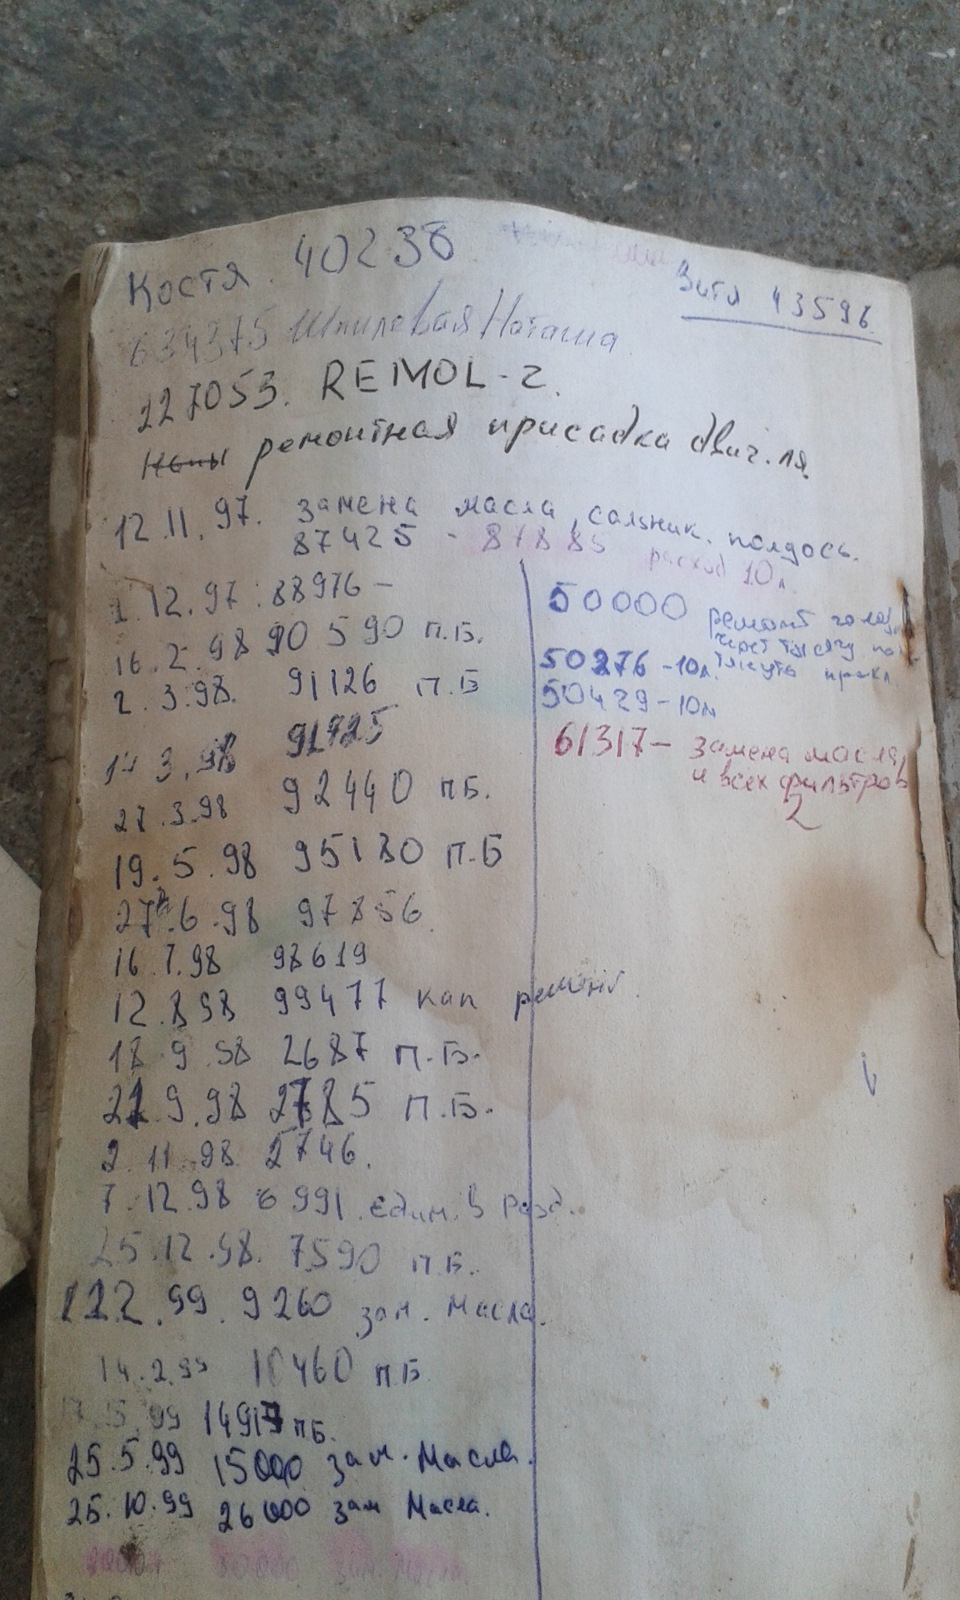 Костя. 40238
Витя 43596
634375 Шпилевая Наташа
227053. REMOL-2.
ремонтная присадка двиг.ля.
12.11.97. замена масла, сальник. полдось.
87425 - 87885 расход 10л
1.12.97 : 88976 -
16.2.98 90 590 П.Б.
2.3.98. 91126 П.Б
14 3.98 91725
27.3.98 92440 П.Б.
19.5.98 95130 П.Б
27.6.98 97856
16.7.98 98619
12.8.98 99477 кап ремонт
18 9.98 2687 П.Б.
21 9.98 2785 П.Б.
2 11.98 2746.
7.12.98 6991. един. в разд.
25.12.98. 7590 П.Б.
9260 зам. масла.
14.2.99 10460 П.Б
14917 П.Б.
25.5.99 15000 зам. Масла.
25.10.99 26000 зам Масла.
50000 ремонт
через тысячу
50276 - 10л.
50429 - 10л
61317 - замена масла,
и всех фильтров
2